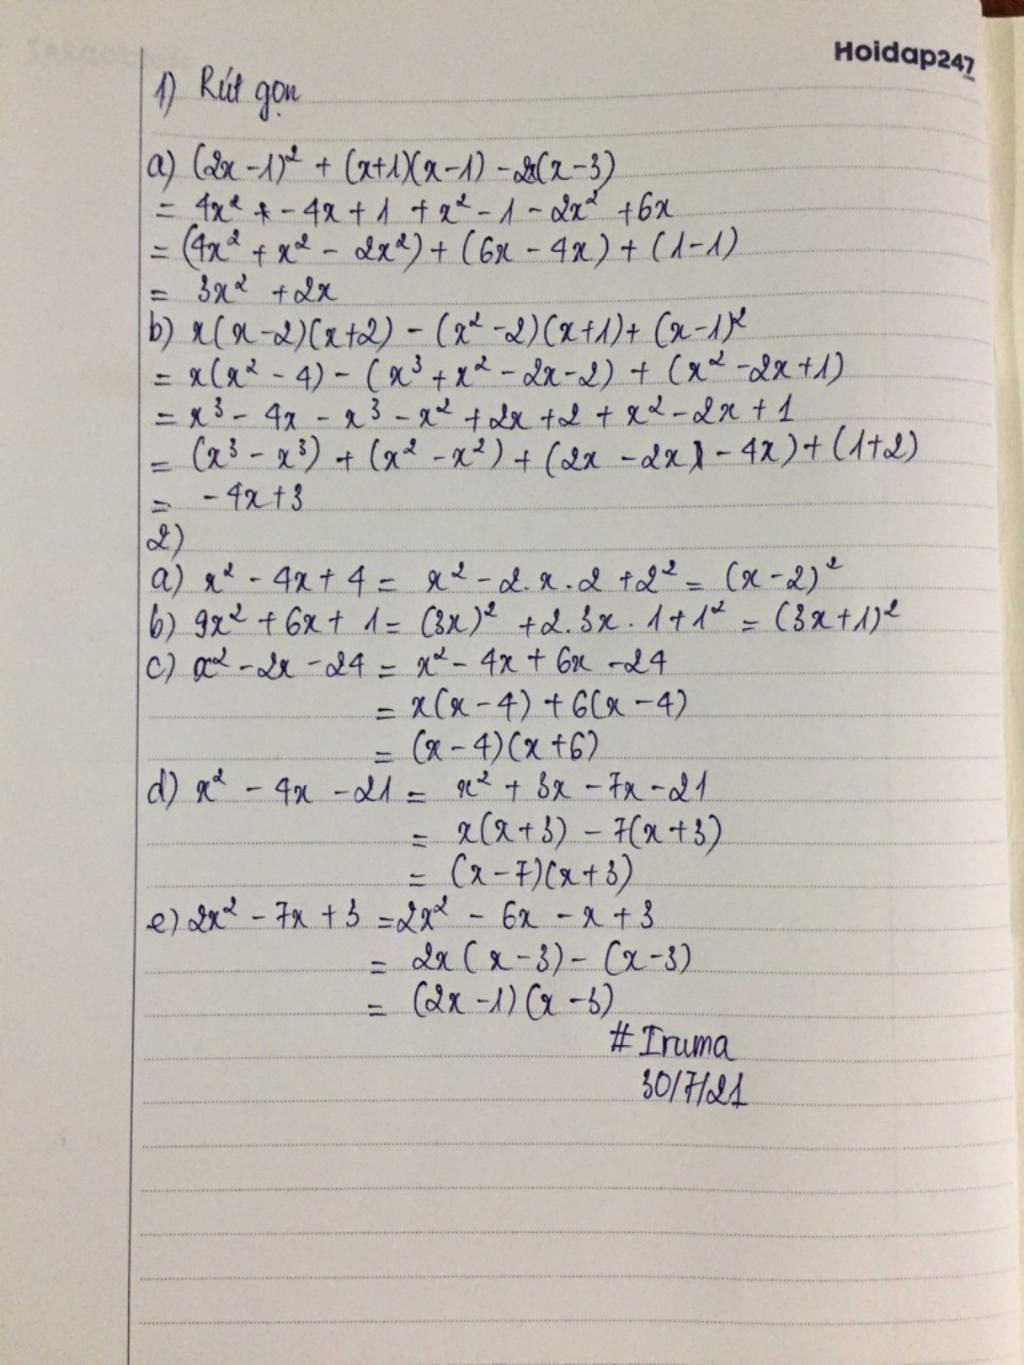 Hoidap247
1) Rút gọn
a) (2x-1)² + (x+1)(x-1) - 2x(x-3)
= 4x² + - 4x + 1 + x² - 1 - 2x² + 6x
= (4x² + x² - 2x²) + (6x - 4x) + (1-1)
= 3x² + 2x
b) x(x-2)(x+2) - (x²-2)(x+1) + (x-1)²
= x(x² - 4) - (x³ + x² - 2x - 2) + (x² - 2x + 1)
= x³ - 4x - x³ - x² + 2x + 2 + x² - 2x + 1
= (x³ - x³) + (x² - x²) + (2x - 2x) - 4x) + (1+2)
= -4x + 3
2)
a) x² - 4x + 4 = x² - 2.x.2 + 2² = (x-2)²
b) 9x² + 6x + 1 = (3x)² + 2.3x.1 + 1² = (3x+1)²
c) x² - 2x - 24 = x² - 4x + 6x - 24
= x(x-4) + 6(x-4)
= (x-4)(x+6)
d) x² - 4x - 21 = x² + 3x - 7x - 21
= x(x+3) - 7(x+3)
= (x-7)(x+3)
e) 2x² - 7x + 3 = 2x² - 6x - x + 3
= 2x(x-3) - (x-3)
= (2x-1)(x-3)
# Iruma
30/7/21